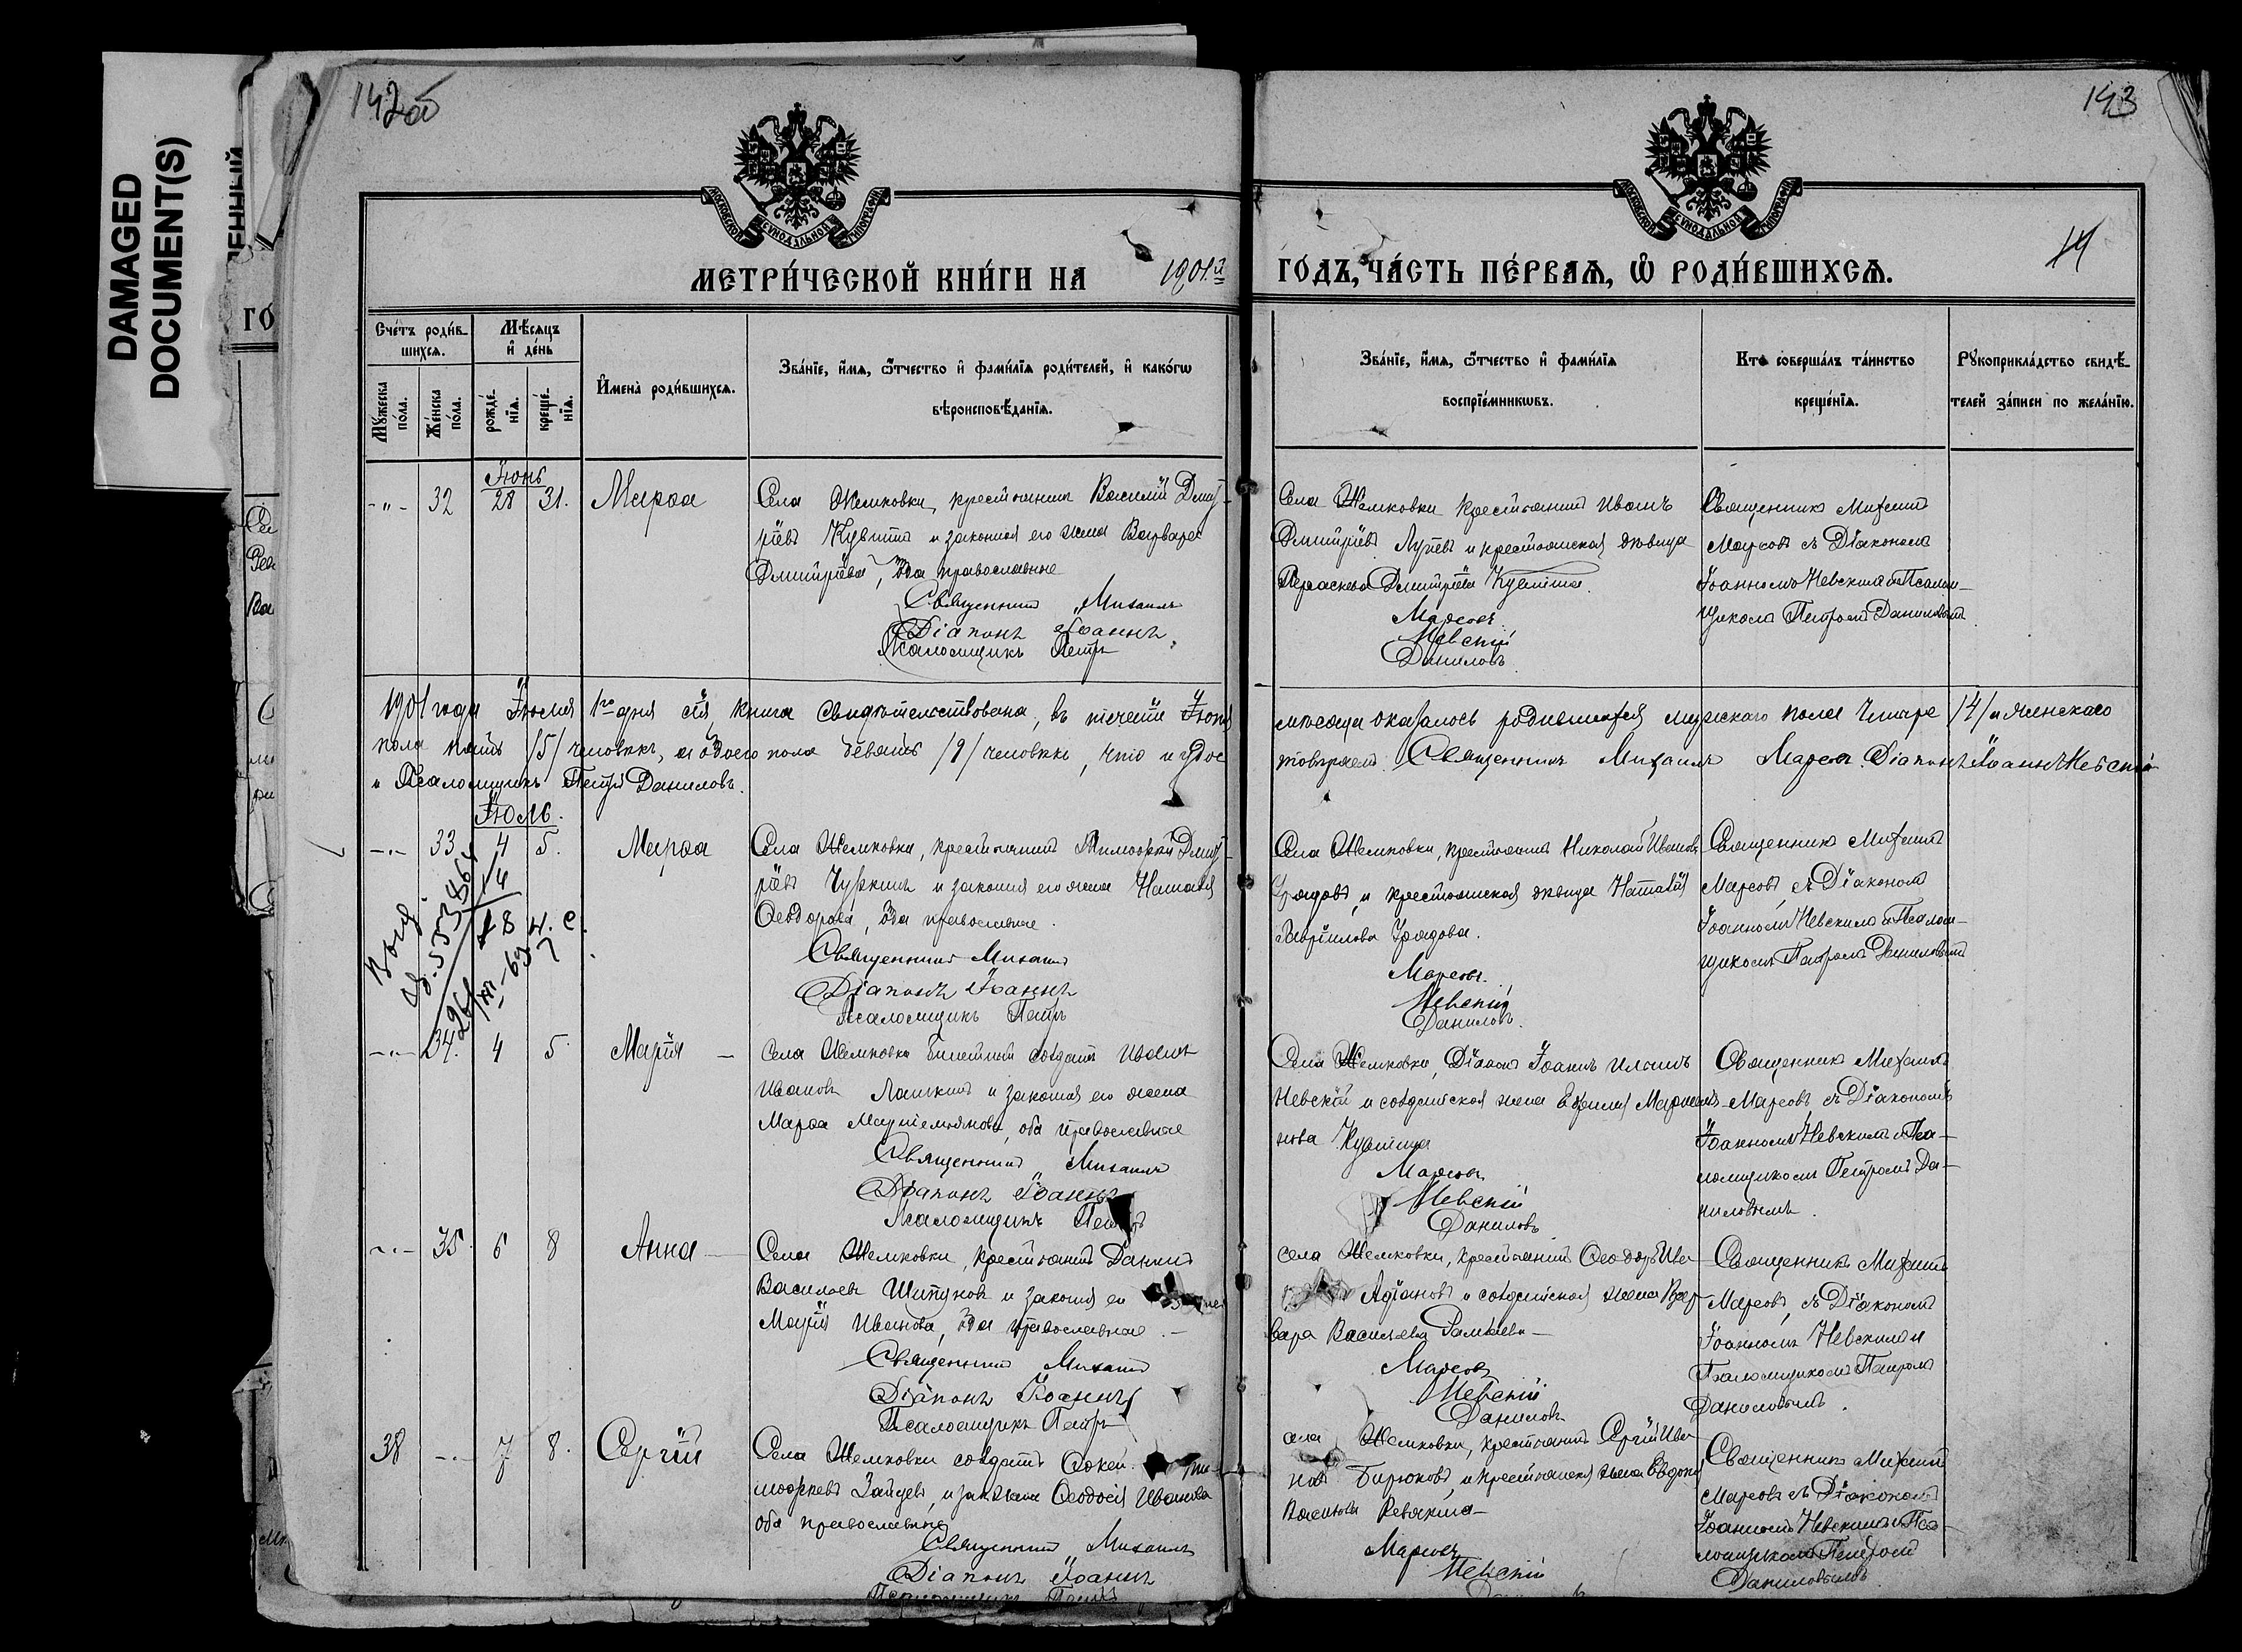 DAMAGED
DOCUMENT(S)
142об
143
14
МОСКОВСКОЙ СѴНОДАЛЬНОЙ ТИПОГРАФІИ
МОСКОВСКОЙ СѴНОДАЛЬНОЙ ТИПОГРАФІИ
МЕТРИ́ЧЕСКОЙ КНИ́ГИ НА 1901.й ГО́ДЪ, ЧА́СТЬ ПЕ́РВАѦ, Ѽ РОДИ́ВШИХСѦ.
Сче́тъ роди́в-
шихсѧ.
Мꙋ́жеска
по́ла.
Же́нска
по́ла.
Мѣ́сѧцъ
и҆ де́нь
рожде́-
нїѧ.
креще́-
нїѧ.
И҆мена̀ роди́вшихсѧ.
Зва́нїе, и҆́мѧ, ѻ҆́тчество и҆ фами́лїѧ роди́телей, и҆ како́гѡ
вѣроисповѣ́данїѧ.
Зва́нїе, и҆́мѧ, ѻ҆́тчество и҆ фами́лїѧ
воспрїе́мникѡвъ.
Кто̀ соверша́лъ та́инство
креще́нїѧ.
Рꙋкоприкла́дство свидѣ́-
телей за́писи по жела́нїю.
Іюнь
-"- 32 28 31. Марѳа
Села Жемковки, крестьянинъ Василій Дмит-
ріевъ Кувшинъ и законная его жена Варвара
Дмитріева, оба православные
Священникъ Михаилъ
Діаконъ Іоаннъ
Псаломщикъ Петръ
Села Жемковки крестьянинъ Иванъ
Дмитріевъ и крестьянская дѣвица
Параскева Дмитріева
Марсовъ.
Невскій
Даниловъ.
Священникъ Михаилъ
Марсовъ съ Діакономъ
Іоанномъ Невскимъ и Псалом-
щикомъ Петромъ Даниловымъ
1901 года Іюля 1го дня сія книга свидѣтельствована, въ теченіи Іюня мѣсяца оказалось родившихся мужскаго пола четыре /4/ и женскаго
пола пять /5/ человѣкъ, а обоего пола девять /9/ человѣкъ, что и удос
товѣряемъ. Священникъ Михаилъ Марсовъ. Діаконъ Іоаннъ Невскій
и Псаломщикъ Петръ Даниловъ.
Іюль.
-"- 33 4 5. Марѳа
Села Жемковки, крестьянинъ Тимоѳей Дмит-
ріевъ Чуркинъ и законная его жена Наталія
Ѳеодорова, оба православные.
Священникъ Михаилъ
Діаконъ Іоаннъ
Псаломщикъ Петръ
Села Жемковки, крестьянинъ Николай Ивановъ
и крестьянская дѣвица Наталія
Гаврилова
Марсовъ.
Невскій
Даниловъ.
Священникъ Михаилъ
Марсовъ, съ Діакономъ
Іоанномъ Невскимъ и Псалом-
щикомъ Петромъ Даниловымъ
-"- 34. 4 5. Марія -
Села Жемковки билетный солдатъ Иванъ
Ивановъ и законная его жена
Марѳа оба православные
Священникъ Михаилъ
Діаконъ Іоаннъ
Псаломщикъ Петръ
Села Жемковки, Діаконъ Іоаннъ
Невскій и солдатская жена
Марсовъ
Невскій
Даниловъ
Священникъ Михаилъ
Марсовъ, съ Діакономъ
Іоанномъ Невскимъ и Пса-
ломщикомъ Петромъ Да-
ниловымъ.
-"- 35 6 8 Анна -
Села Жемковки, крестьянинъ Даниилъ
Васильевъ Шипуновъ и законная его
Марія Иванова, оба православные. -
Священникъ Михаилъ
Діаконъ Іоаннъ
Псаломщикъ Петръ
села Жемковки, крестьянинъ Ѳеодоръ Ива
и солдатская жена Вар
вара Васильева
Марсовъ
Невскій
Даниловъ
Священникъ Михаилъ
Марсовъ, съ Діакономъ
Іоанномъ Невскимъ и
Псаломщикомъ Петромъ
Даниловымъ.
38 -"- 7 8. Сергій
Села Жемковки солдатъ Ти-
моѳеевъ Зайцевъ, и Ѳеодосія Иванова
оба православные
Священникъ Михаилъ
Діаконъ Іоаннъ
Псаломщикъ Петръ
села Жемковки, крестьянинъ Сергій Ива
новъ Бирюковъ, и крестьянская жена Евдокія
Марсовъ
Невскій
Священникъ Михаилъ
Марсовъ съ Діакономъ
Іоанномъ Невскимъ и Пса-
ломщикомъ Петромъ
Даниловымъ